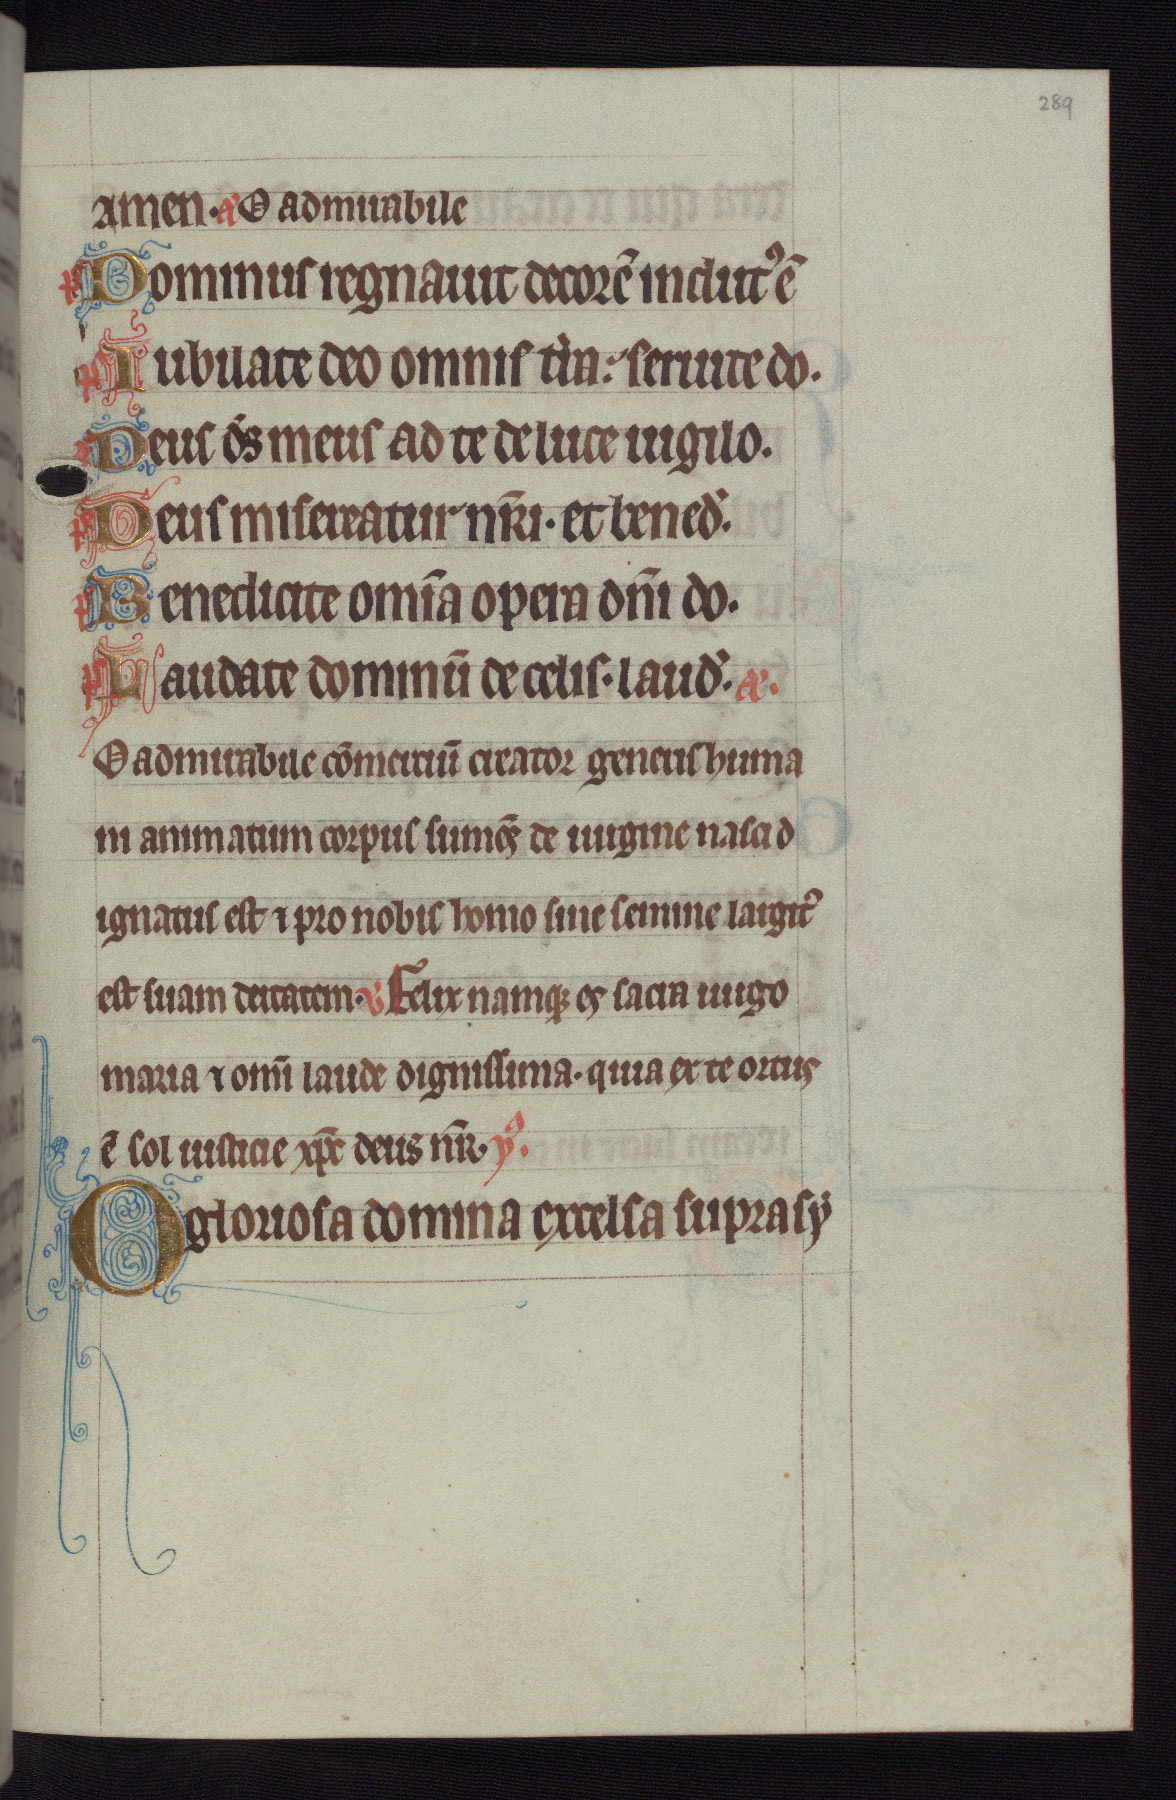 289
amen. ã O admirabile
p̃ Dominus regnauit decorē indut᷒ ē
p̃ Iubilate deo omnis t̃ra: seruite do.
p̃ Deus ds̄ meus ad te de luce uigilo.
p̃ Deus misereatur nr̄i. et bened̄.
p̃ Benedicite omīa opera dn̄i do.
p̃ Laudate dominū de celis. laud̄. ã.
O admirabile cōmerciū creator generis huma
ni animatum corpus sumēs de uirgine nasci d
ignatus est ⁊ pro nobis homo sine semine largit᷒
est suam deitatem. v Felix namq; es sacra uirgo
maria ⁊ omī laude dignissima. quia ex te ortus
ē sol iusticie xp̄c deus nr̄. y᷒.
O gloriosa domina excelsa supra sy